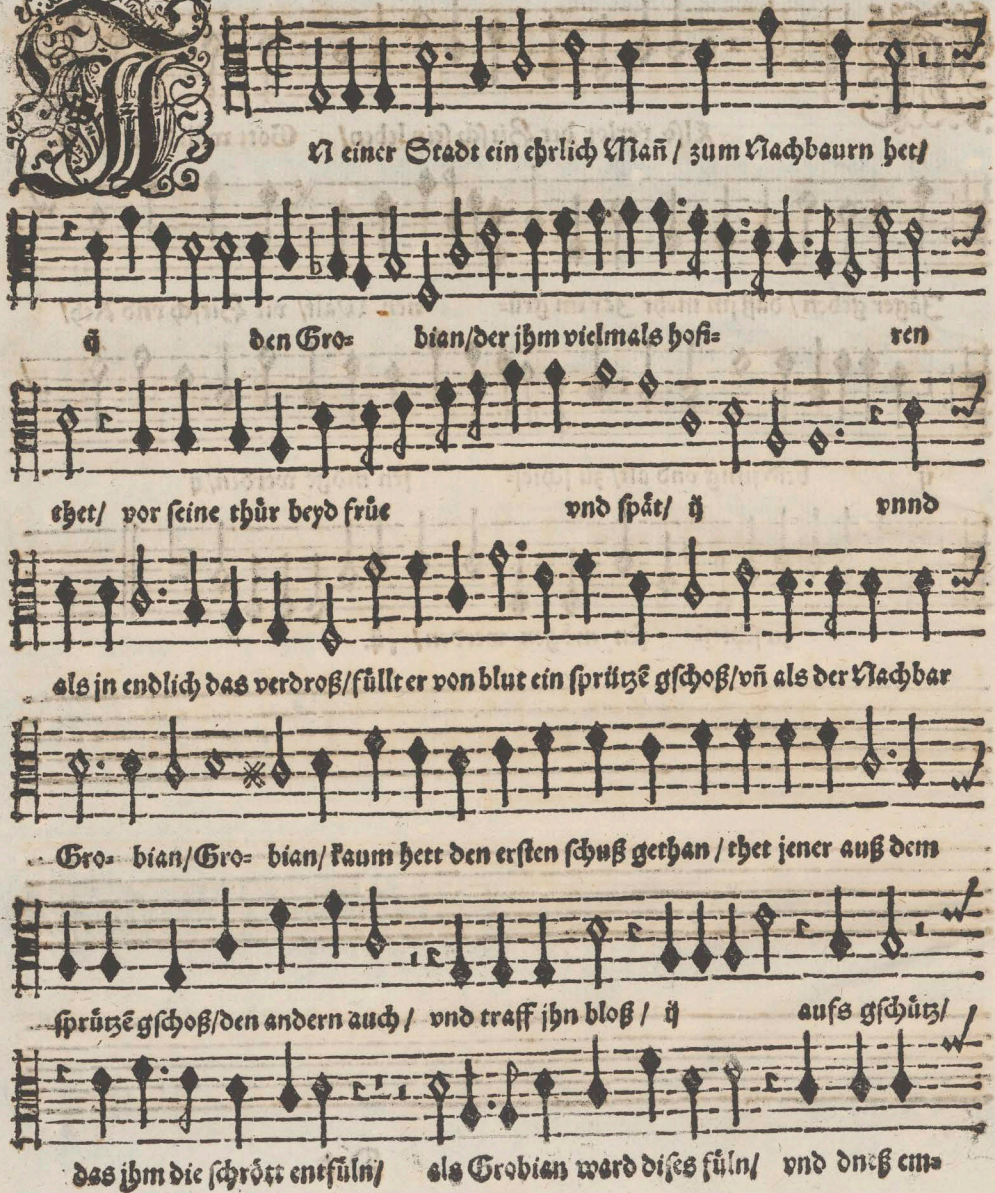 IN einer Stadt ein ehrlich Mañ / zum Nachbaurn het/
ij den Gro= bian/der jhm vielmals hofi= ren
thet/ vor seine thür beyd früe vnd spåt/ ij vnnd
als jn endlich das verdroß/füllt er von blut ein sprützē gschoß/vñ als der Nachbar
Gro= bian/Gro= bian/kaum hett den ersten schuß gethan / thet jener auß dem
sprützē gschoß/den andern auch / vnd traff jhn bloß / ij aufs gschütz/
das jhm die schrött entfüln/ als Grobian ward dises füln/ vnd em=